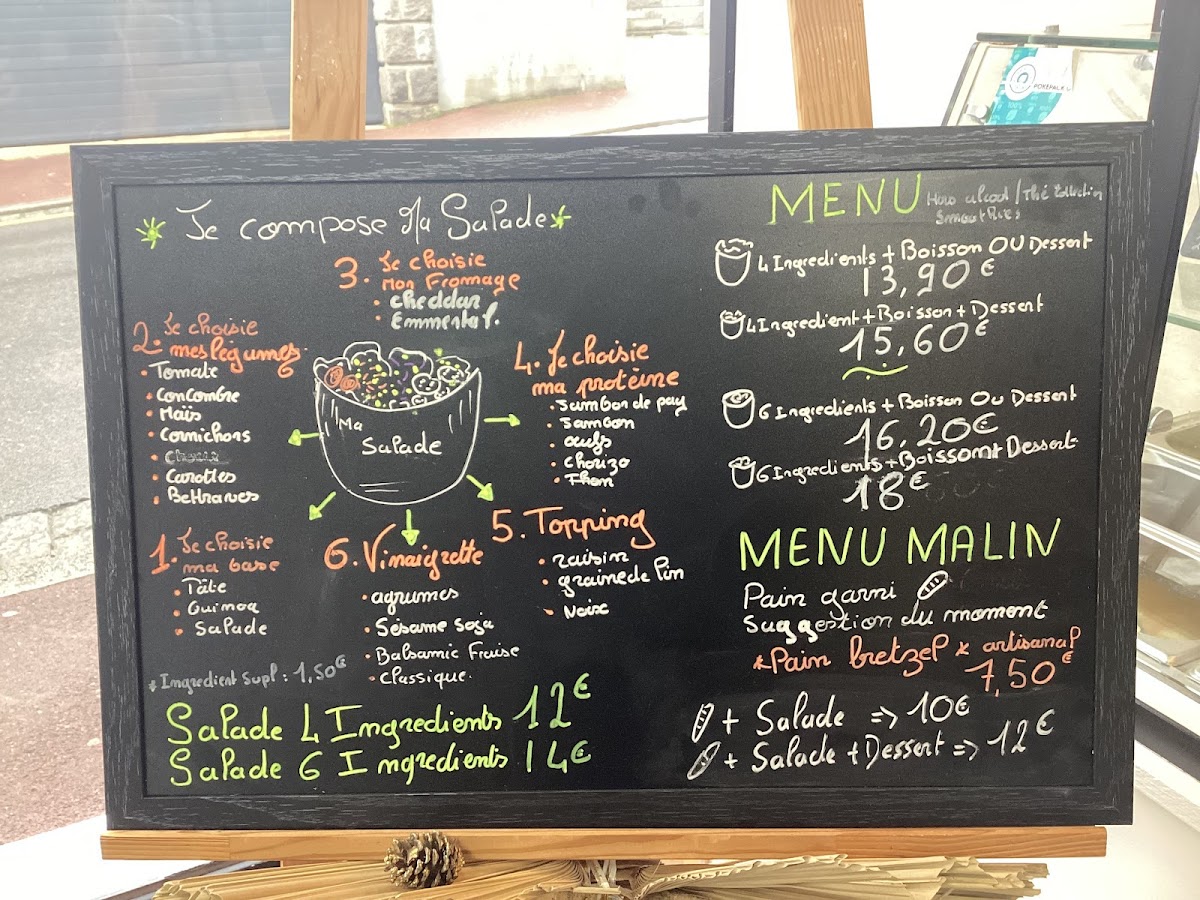 Je compose Ma Salade
3. Je choisie
Mon Fromage
cheddar
Emmental.
2. Je choisie
mes légumes
Tomate
Concombre
Maïs
Cornichons
Carottes
Bettraves
Ma
Salade
4. Je choisie
ma protéine
Jambon de pay
Jambon
œufs
chorizo
Thon
1. Je choisie
ma base
Pâte
Quinoa
Salade
6. Vinaigrette
agrumes
Sésame soja
Balsamic Fraise
classique.
5. Topping
raisin
graine de Pin
Noix
* Ingredient Supl : 1,50€
Salade 4 Ingredients 12€
Salade 6 Ingredients 14€
MENU Hors alcool / Thé
4 Ingredients + Boisson OU Dessert
13,90€
4 Ingredient + Boisson + Dessert
15,60€
6 Ingredients + Boisson Ou Dessert
16,20€
6 Ingredients + Boisson + Dessert
18€
MENU MALIN
Pain garni
Suggestion du moment
*Pain bretzel * artisanal
7,50€
+ Salade => 10€
+ Salade + Dessert => 12€
POKEPALK